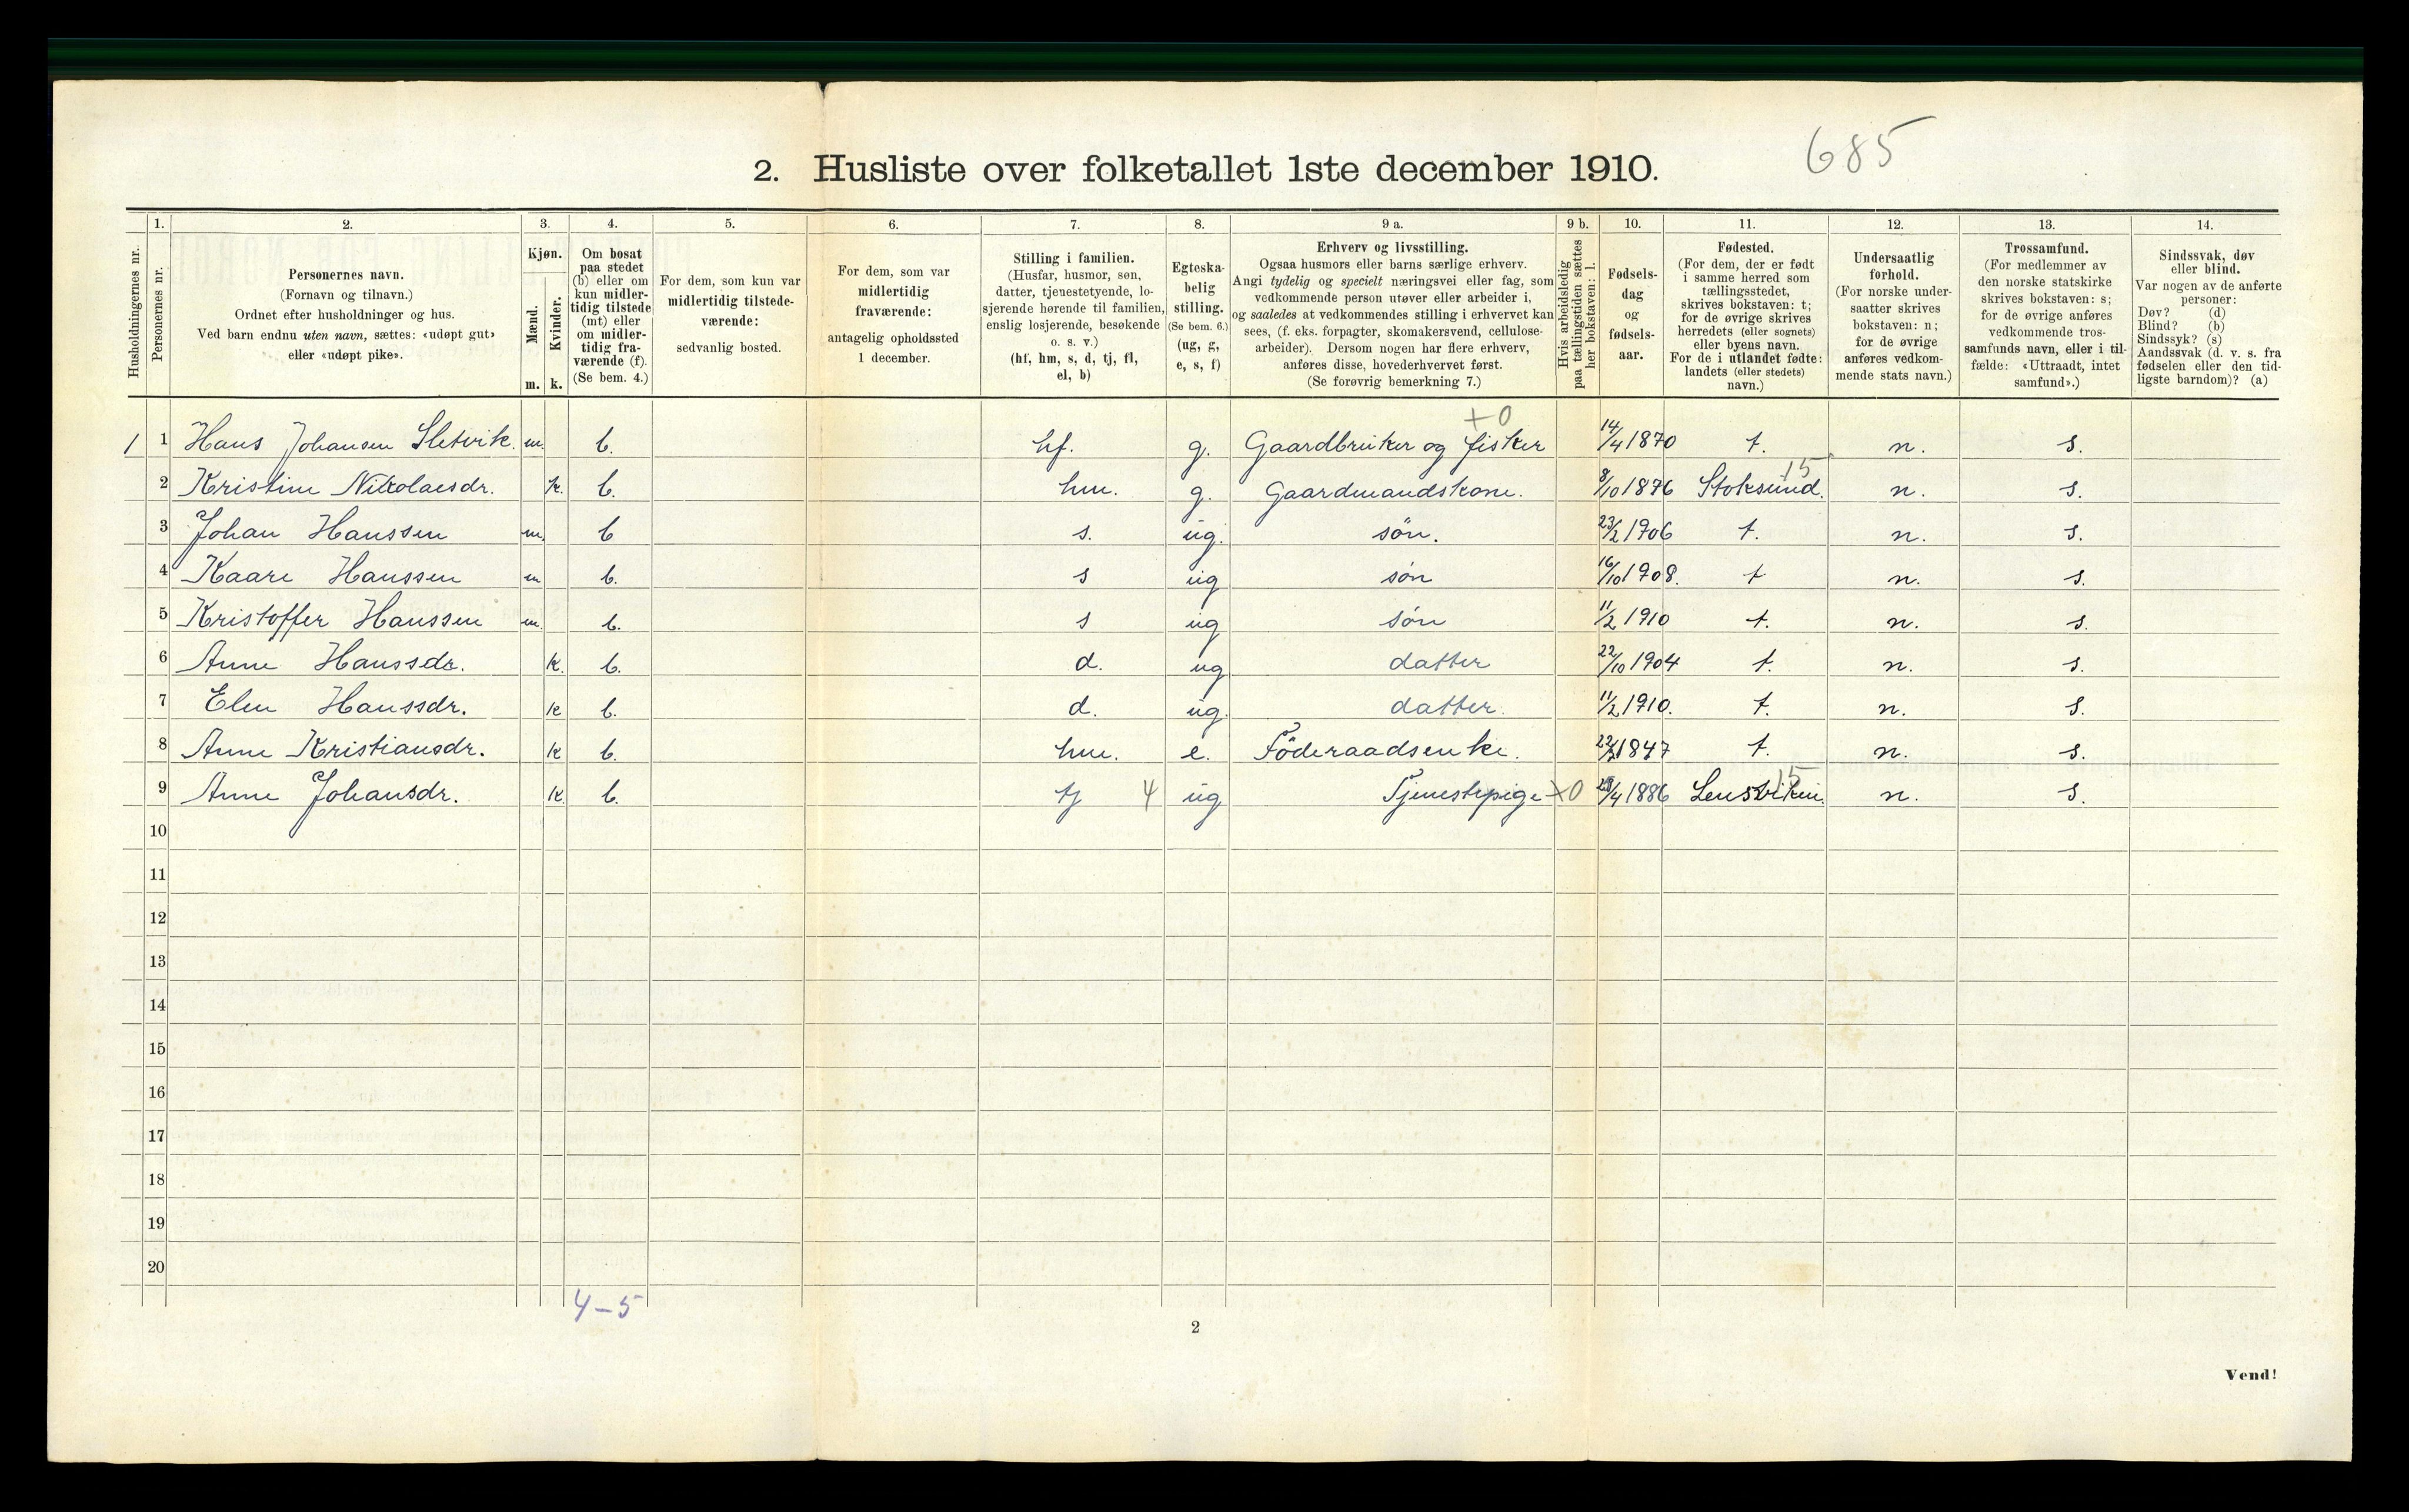 685
2. Husliste over folketallet 1ste december 1910.
Husholdningernes nr.
1.
Personernes nr.
2.
Personernes navn.
(Fornavn og tilnavn.)
Ordnet efter husholdninger og hus.
Ved barn endnu uten navn, sættes: «udøpt gut»
eller «udøpt pike».
3.
Kjøn.
Mænd.
Kvinder.
m. k.
4.
Om bosat
paa stedet
(b) eller om
kun midler-
tidig tilstede
(mt) eller
om midler-
tidig fra-
værende (f).
(Se bem. 4.)
5.
For dem, som kun var
midlertidig tilstede-
værende:
sedvanlig bosted.
6.
For dem, som var
midlertidig
fraværende:
antagelig opholdssted
1 december.
7.
Stilling i familien.
(Husfar, husmor, søn,
datter, tjenestetyende, lo-
sjerende hørende til familien,
enslig losjerende, besøkende
o. s. v.)
(hf, hm, s, d, tj, fl,
el, b)
8.
Egteska-
belig
stilling.
(Se bem. 6.)
(ug, g,
e, s, f)
9 a.
Erhverv og livsstilling.
Ogsaa husmors eller barns særlige erhverv.
Angi tydelig og specielt næringsvei eller fag, som
vedkommende person utøver eller arbeider i,
og saaledes at vedkommendes stilling i erhvervet kan
sees, (f. eks. forpagter, skomakersvend, cellulose-
arbeider). Dersom nogen har flere erhverv,
anføres disse, hovederhvervet først.
(Se forøvrig bemerkning 7.)
9 b.
Hvis arbeidsledig
paa tællingstiden sættes
her bokstaven: l.
10.
Fødsels-
dag
og
fødsels-
aar.
11.
Fødested.
(For dem, der er født
i samme herred som
tællingsstedet,
skrives bokstaven: t;
for de øvrige skrives
herredets (eller sognets)
eller byens navn.
For de i utlandet fødte:
landets (eller stedets)
navn.)
12.
Undersaatlig
forhold.
(For norske under-
saatter skrives
bokstaven: n;
for de øvrige
anføres vedkom-
mende stats navn.)
13.
Trossamfund.
(For medlemmer av
den norske statskirke
skrives bokstaven: s;
for de øvrige anføres
vedkommende tros-
samfunds navn, eller i til-
fælde: «Uttraadt, intet
samfund».)
14.
Sindssvak, døv
eller blind.
Var nogen av de anførte
personer:
Døv? (d)
Blind? (b)
Sindssyk? (s)
Aandssvak (d. v. s. fra
fødselen eller den tid-
ligste barndom)? (a)
+0
1 1 Hans Johansen Sletvik. m. b. hf. g. Gaardbruker og fisker 14/4 1870 t. n. s.
15
2 Kristine Nikolaesdr. k. b. hm. g. Gaardmandskone. 8/10 1876 Stoksund. n. s.
3 Johan Hanssen m. b s. ug. søn. 23/2 1906 t. n. s.
4 Kaare Hanssen m b. s ug søn 16/10 1908. t n. s.
5 Kristoffer Hanssen m. b. s ug søn 11/2 1910 t. n. s.
6 Anne Hanssdr. k. b. d. ug datter 22/10 1904 t. n. s.
7 Elen Hanssdr. k b. d. ug. datter. 11/2 1910. t. n. s.
8 Anne Kristiansdr. k b. hm. e. Föderaadsenke. 1847 t. n. s.
15
9 Anne Johansdr. k. b. tj 4 ug Tjenestepige +0 1886 Lensviken. n. s.
10
11
12
13
14
15
16
17
18
19
20
4–5
2
Vend!